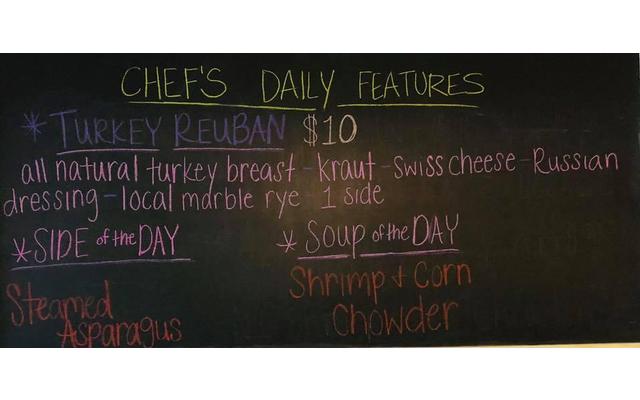 CHEF'S DAILY FEATURES
* TURKEY REUBAN $10
all natural turkey breast - kraut - swiss cheese - Russian
dressing - local marble rye - 1 side
* SIDE of the DAY
* SOUP of the DAY
Steamed
Asparagus
Shrimp + Corn
Chowder